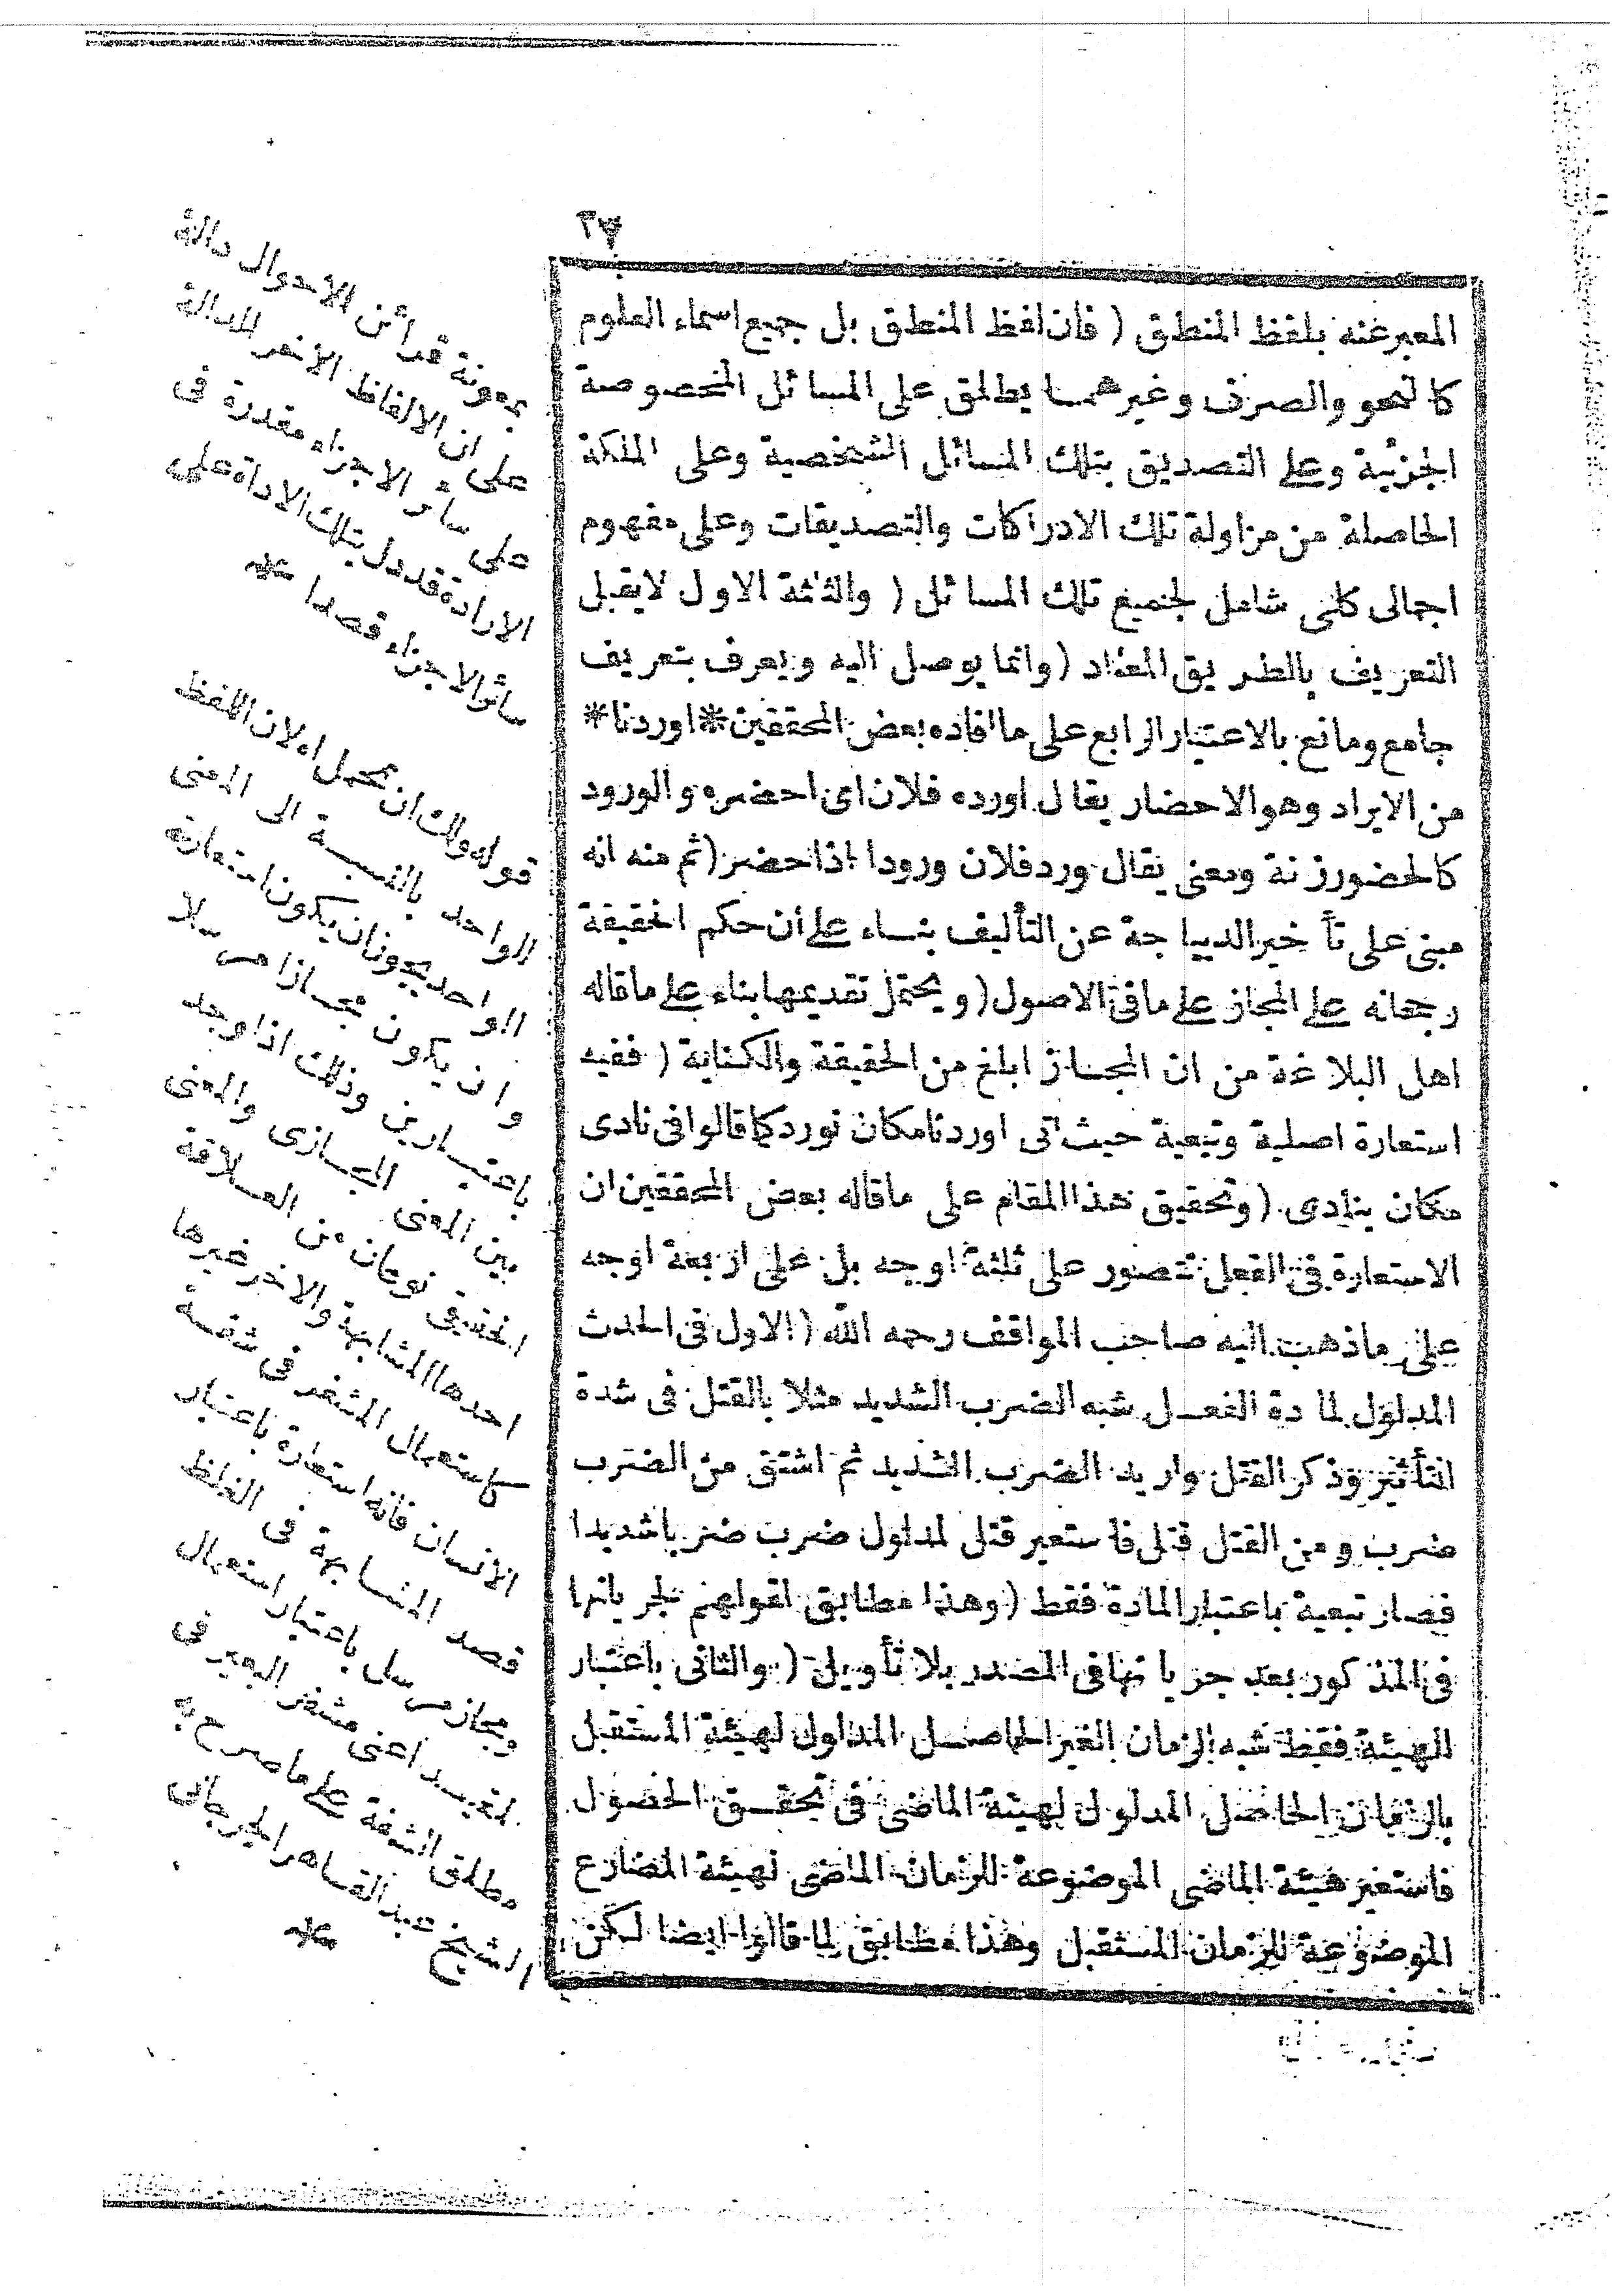 ٣٧
المعبر عنه بلفظ المنطق ( فان لفظ المنطق بل جميع اسماء العلوم
كالنحو والصرف وغيرهمما يطلق على المسائل المخصوصة
الجزئية وعلى التصديق بتلك المسائل الشخصية وعلى الملكة
الحاصلة من مزاولة تلك الادراكات والتصديقات وعلى مفهوم
اجمالى كلى شامل لجميع تلك المسائل ( والثلثة الاول لايقبل
التعريف بالطريق المعتاد (وانما يوصل اليه ويعرف بتعريف
جامع ومانع بالاعتبار الرابع على ما افاده بعض المحققين * اوردنا *
من الايراد وهو الاحضار يقال اورده فلان اى احضره والورود
كالحضور زنة ومعنى يقال ورد فلان ورودا اذا حضر (ثم منه انه
مبنى على تأخير الديباجة عن التأليف بناء على أن حكم الحقيقة
رجحانه على المجاز على مافى الاصول (ويحتمل تقديمها بناء على ماقاله
اهل البلاغة من ان المجاز ابلغ من الحقيقة والكناية ( ففيه
استعارة اصلية وتبعية حيث اتى اوردنا مكان نورد كما قالوا فى نادى
مكان ينادى (وتحقيق هذا المقام على ماقاله بعض المحققين ان
الاستعارة فى الفعل تتصور على ثلثة اوجه بل على اربعة اوجه
على ماذهب اليه صاحب المواقف رحمه الله ( الاول فى الحدث
المدلول لمادة الفعل شبه الضرب الشديد مثلا بالقتل فى شدة
التأثير وذكر القتل واريد الضرب الشديد ثم اشتق من الضرب
ضرب ومن القتل قتل فاستعير قتل لمدلول ضرب ضربا شديدا
فصار تبعية باعتبار المادة فقط (وهذا مطابق لقولهم لجريانها
فى المذكور بعد جريانها فى المصدر بلا تأويل ( والثانى باعتبار
الهيئة فقط شبه الزمان الغير الحاصل المدلول لهيئة المستقبل
بالزمان الحاصل المدلول لهيئة الماضى فى تحقق الحصول
فاستعير هيئة الماضى الموضوعة للزمان الماضى لهيئة المضارع
الموضوعة للزمان المستقبل وهذا مطابق لما قالوا ايضا لكن
بمعونة قرائن الاحوال دالة
على ان الالفاظ الاخر الدالة
على سائر الاجزاء مقدرة فى
الارادة قددل بتلك الاداة على
سائر الاجزاء قصدا *
قوله ولك ان تحمل اه لان اللفظ
الواحد بالنسبة الى المعنى
الواحد يجوز ان يكون استعارة
وان يكون مجازا مرسلا
باعتبارين وذلك اذا وجد
بين المعنى المجازى والمعنى
الحقيقى نوعان من العلاقة
احدها المشابهة والاخر غيرها
كاستعمال المشفر فى شفة
الانسان فانه استعارة باعتبار
قصد المشابهة فى الغلظ
ومجاز مرسل باعتبار استعمال
المقيد اعنى مشفر البعير فى
مطلق الشفة على ماصرح به
الشيخ عبد القاهر الجرجانى
*